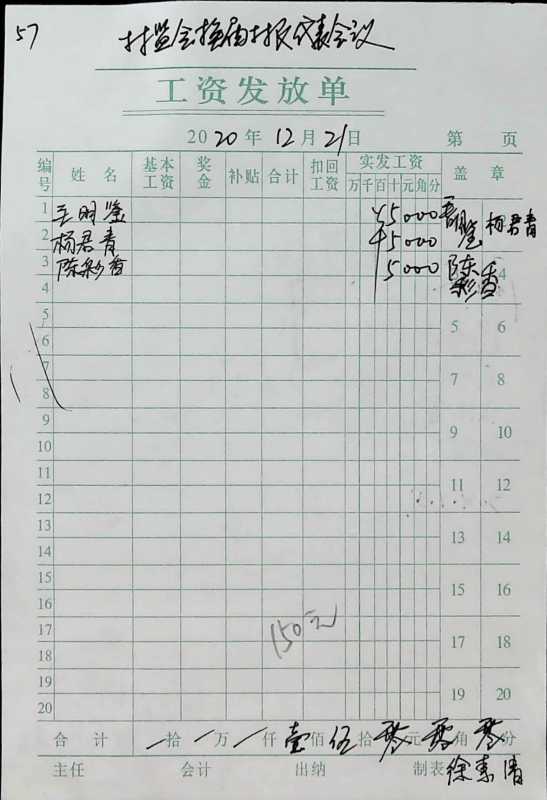 57
村监会换届村民代表会议
工资发放单
2020年12月21日 第 页
编号 姓名 基本工资 奖金 补贴 合计 扣回工资 实发工资 万千百十元角分 盖章
1 王明鉴 5000
2 杨君青 5000 杨君青
3 陈彩香 5000 陈彩香
4 4
5 5 6
6
7 7 8
8
9 9 10
10
11 11 12
12
13 13 14
14
15 15 16
16
17 150元 17 18
18
19 19 20
20
合计 拾 万 仟壹佰伍拾零元零角零分
主任 会计 出纳 制表 徐素清